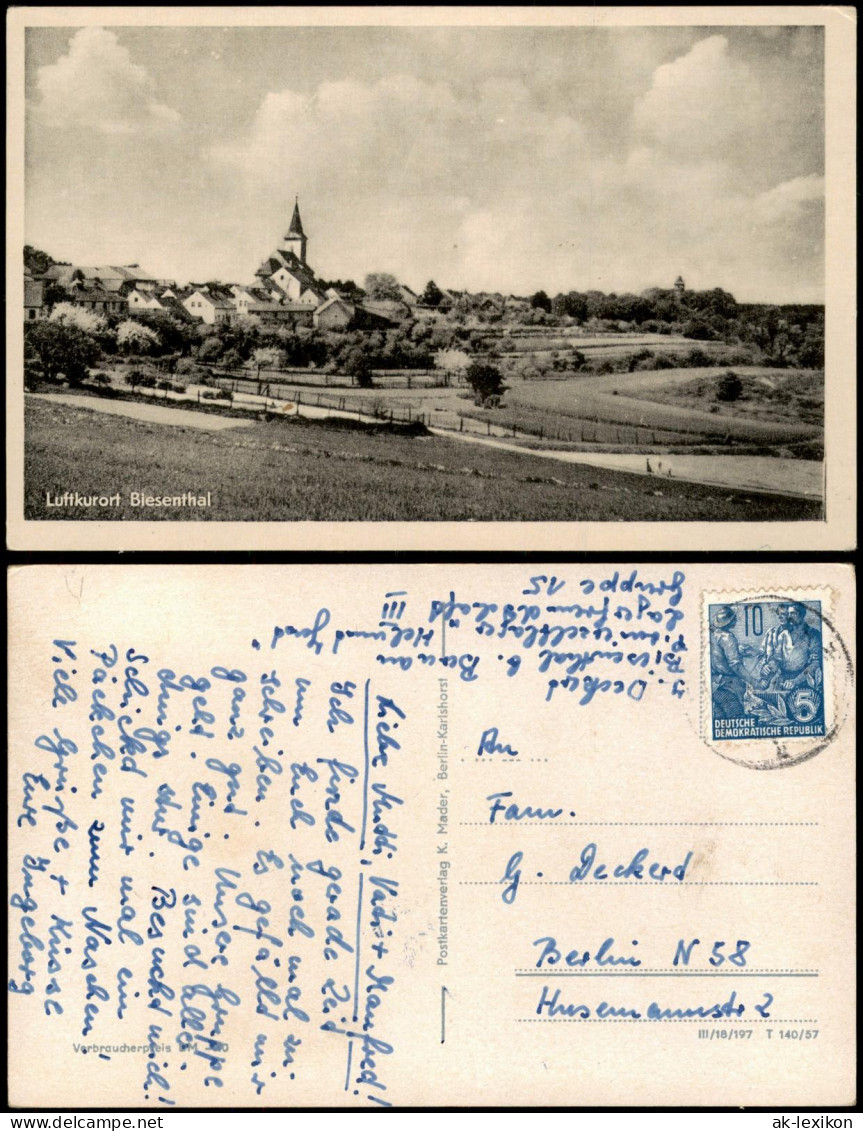 Luftkurort Biesenthal
J. Deckerd
Biesenthal b. Bernau
Pionierzeltlager "Helmut Just"
Lagerfreundschaft III
Gruppe 15
10
5
DEUTSCHE
DEMOKRATISCHE REPUBLIK
Liebe Mutti, Vati + Manfred!
Ich finde gerade Zeit
um Euch noch mal zu
schreiben. Es gefällt mir
ganz gut. Unsere Gruppe
geht. Einige sind aller-
dings stur. Besucht mich!
Schickt mir mal ein
Päckchen zum Naschen!
Viele Grüße + Küsse
Eure Ingeborg
Postkartenverlag K. Mader, Berlin-Karlshorst
An
Fam.
G. Deckerd
Berlin N 58
Husemannstr 2
III/18/197 T 140/57
Verbraucherpreis DM
ak-lexikon